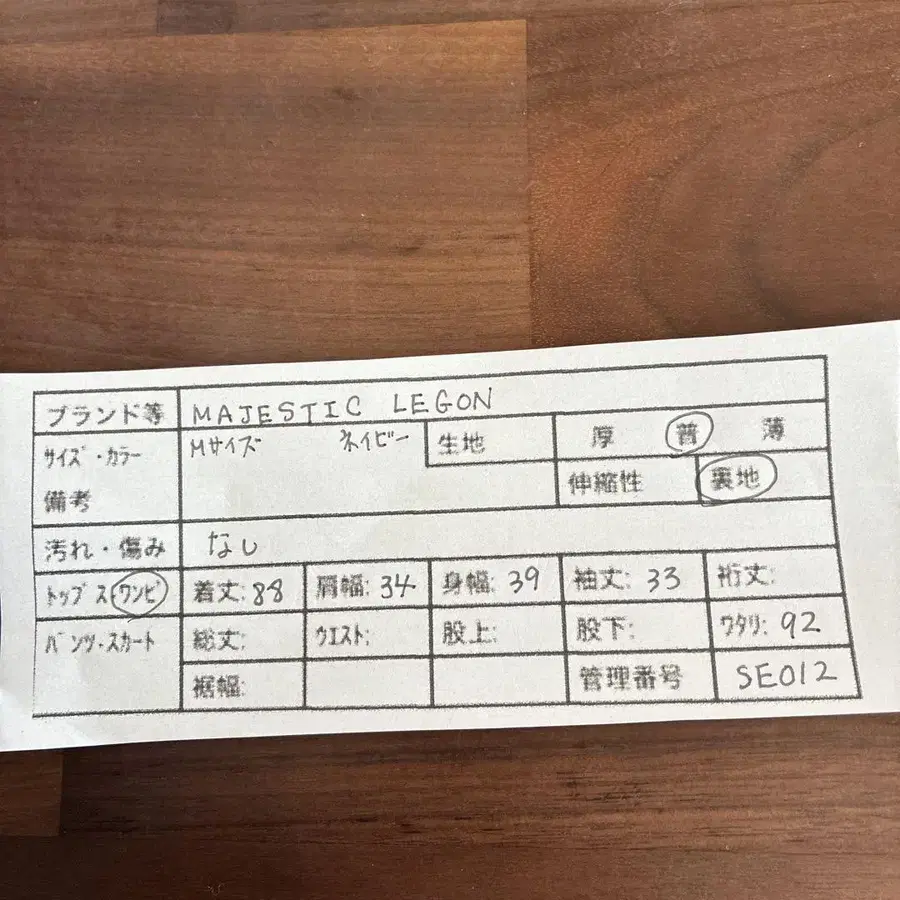 ブランド等 MAJESTIC LEGON
サイズ・カラー Mサイズ ネイビー 生地 厚 普 薄
備考 伸縮性 裏地
汚れ・傷み なし
トップス ワンピ 着丈:88 肩幅:34 身幅:39 袖丈:33 裄丈:
パンツ・スカート 総丈: ウエスト: 股上: 股下: ワタリ:92
裾幅: 管理番号 SE012